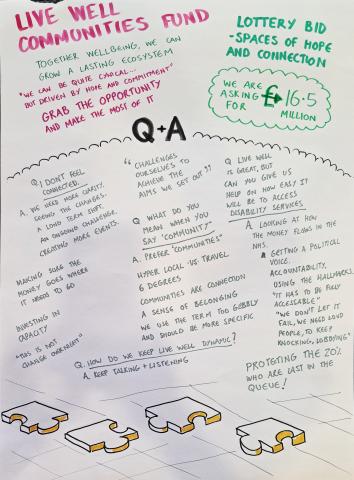 LIVE WELL
COMMUNITIES FUND
TOGETHER WELLBEING, WE CAN
GROW A LASTING ECOSYSTEM
"WE CAN BE QUITE CYNICAL...
BUT DRIVEN BY HOPE AND COMMITMENT"
GRAB THE OPPORTUNITY
AND MAKE THE MOST OF IT
LOTTERY BID
- SPACES OF HOPE
AND CONNECTION
WE ARE
ASKING
FOR
£16.5
MILLION
Q+A
Q. I DON'T FEEL
CONNECTED.
A. WE NEED MORE CLARITY.
SEEING THE CHANGES.
A LONG TERM SHIFT.
AN ONGOING CHALLENGE.
CREATING MORE EVENTS.
MAKING SURE THE
MONEY GOES WHERE
IT NEEDS TO GO
INVESTING IN
CAPACITY
"THIS IS NOT
CHANGE OVERNIGHT"
"CHALLENGES
OURSELVES TO
ACHIEVE THE
AIMS WE SET OUT"
Q. WHAT DO YOU
MEAN WHEN YOU
SAY 'COMMUNITY'
A. PREFER "COMMUNITIES"
HYPER LOCAL VS. TRAVEL
6 DEGREES
COMMUNITIES ARE CONNECTION
A SENSE OF BELONGING
WE USE THE TERM TOO GLIBLY
AND SHOULD BE MORE SPECIFIC
Q. HOW DO WE KEEP LIVE WELL DYNAMIC?
A. KEEP TALKING + LISTENING
Q. LIVE WELL
IS GREAT, BUT
CAN YOU GIVE US
HELP ON HOW EASY IT
WILL BE TO ACCESS
DISABILITY SERVICES
A. LOOKING AT HOW
THE MONEY FLOWS IN THE
NHS.
GETTING A POLITICAL
VOICE.
ACCOUNTABILITY,
USING THE HALLMARKS
"IT HAS TO BE FULLY
ACCESSABLE"
"WE DON'T LET IT
FAIL, WE NEED LOUD
PEOPLE, TO KEEP
KNOCKING, LOBBYING"
PROTECTING THE 20%
WHO ARE LAST IN THE
QUEUE!